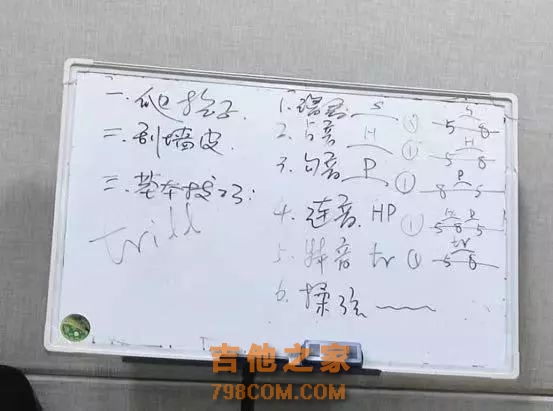 一. 爬格子.
二. 刮墙皮.
三. 基本技巧:
trill
1. 滑音 S ① S 5 8
2. 击音 H ① H 5 8
3. 勾音 P ① P 8 5
4. 连音. HP ① H P 5 8 5
5. 颤音 tr ① tr 5 8
6. 揉弦
吉他之家
798COM.COM